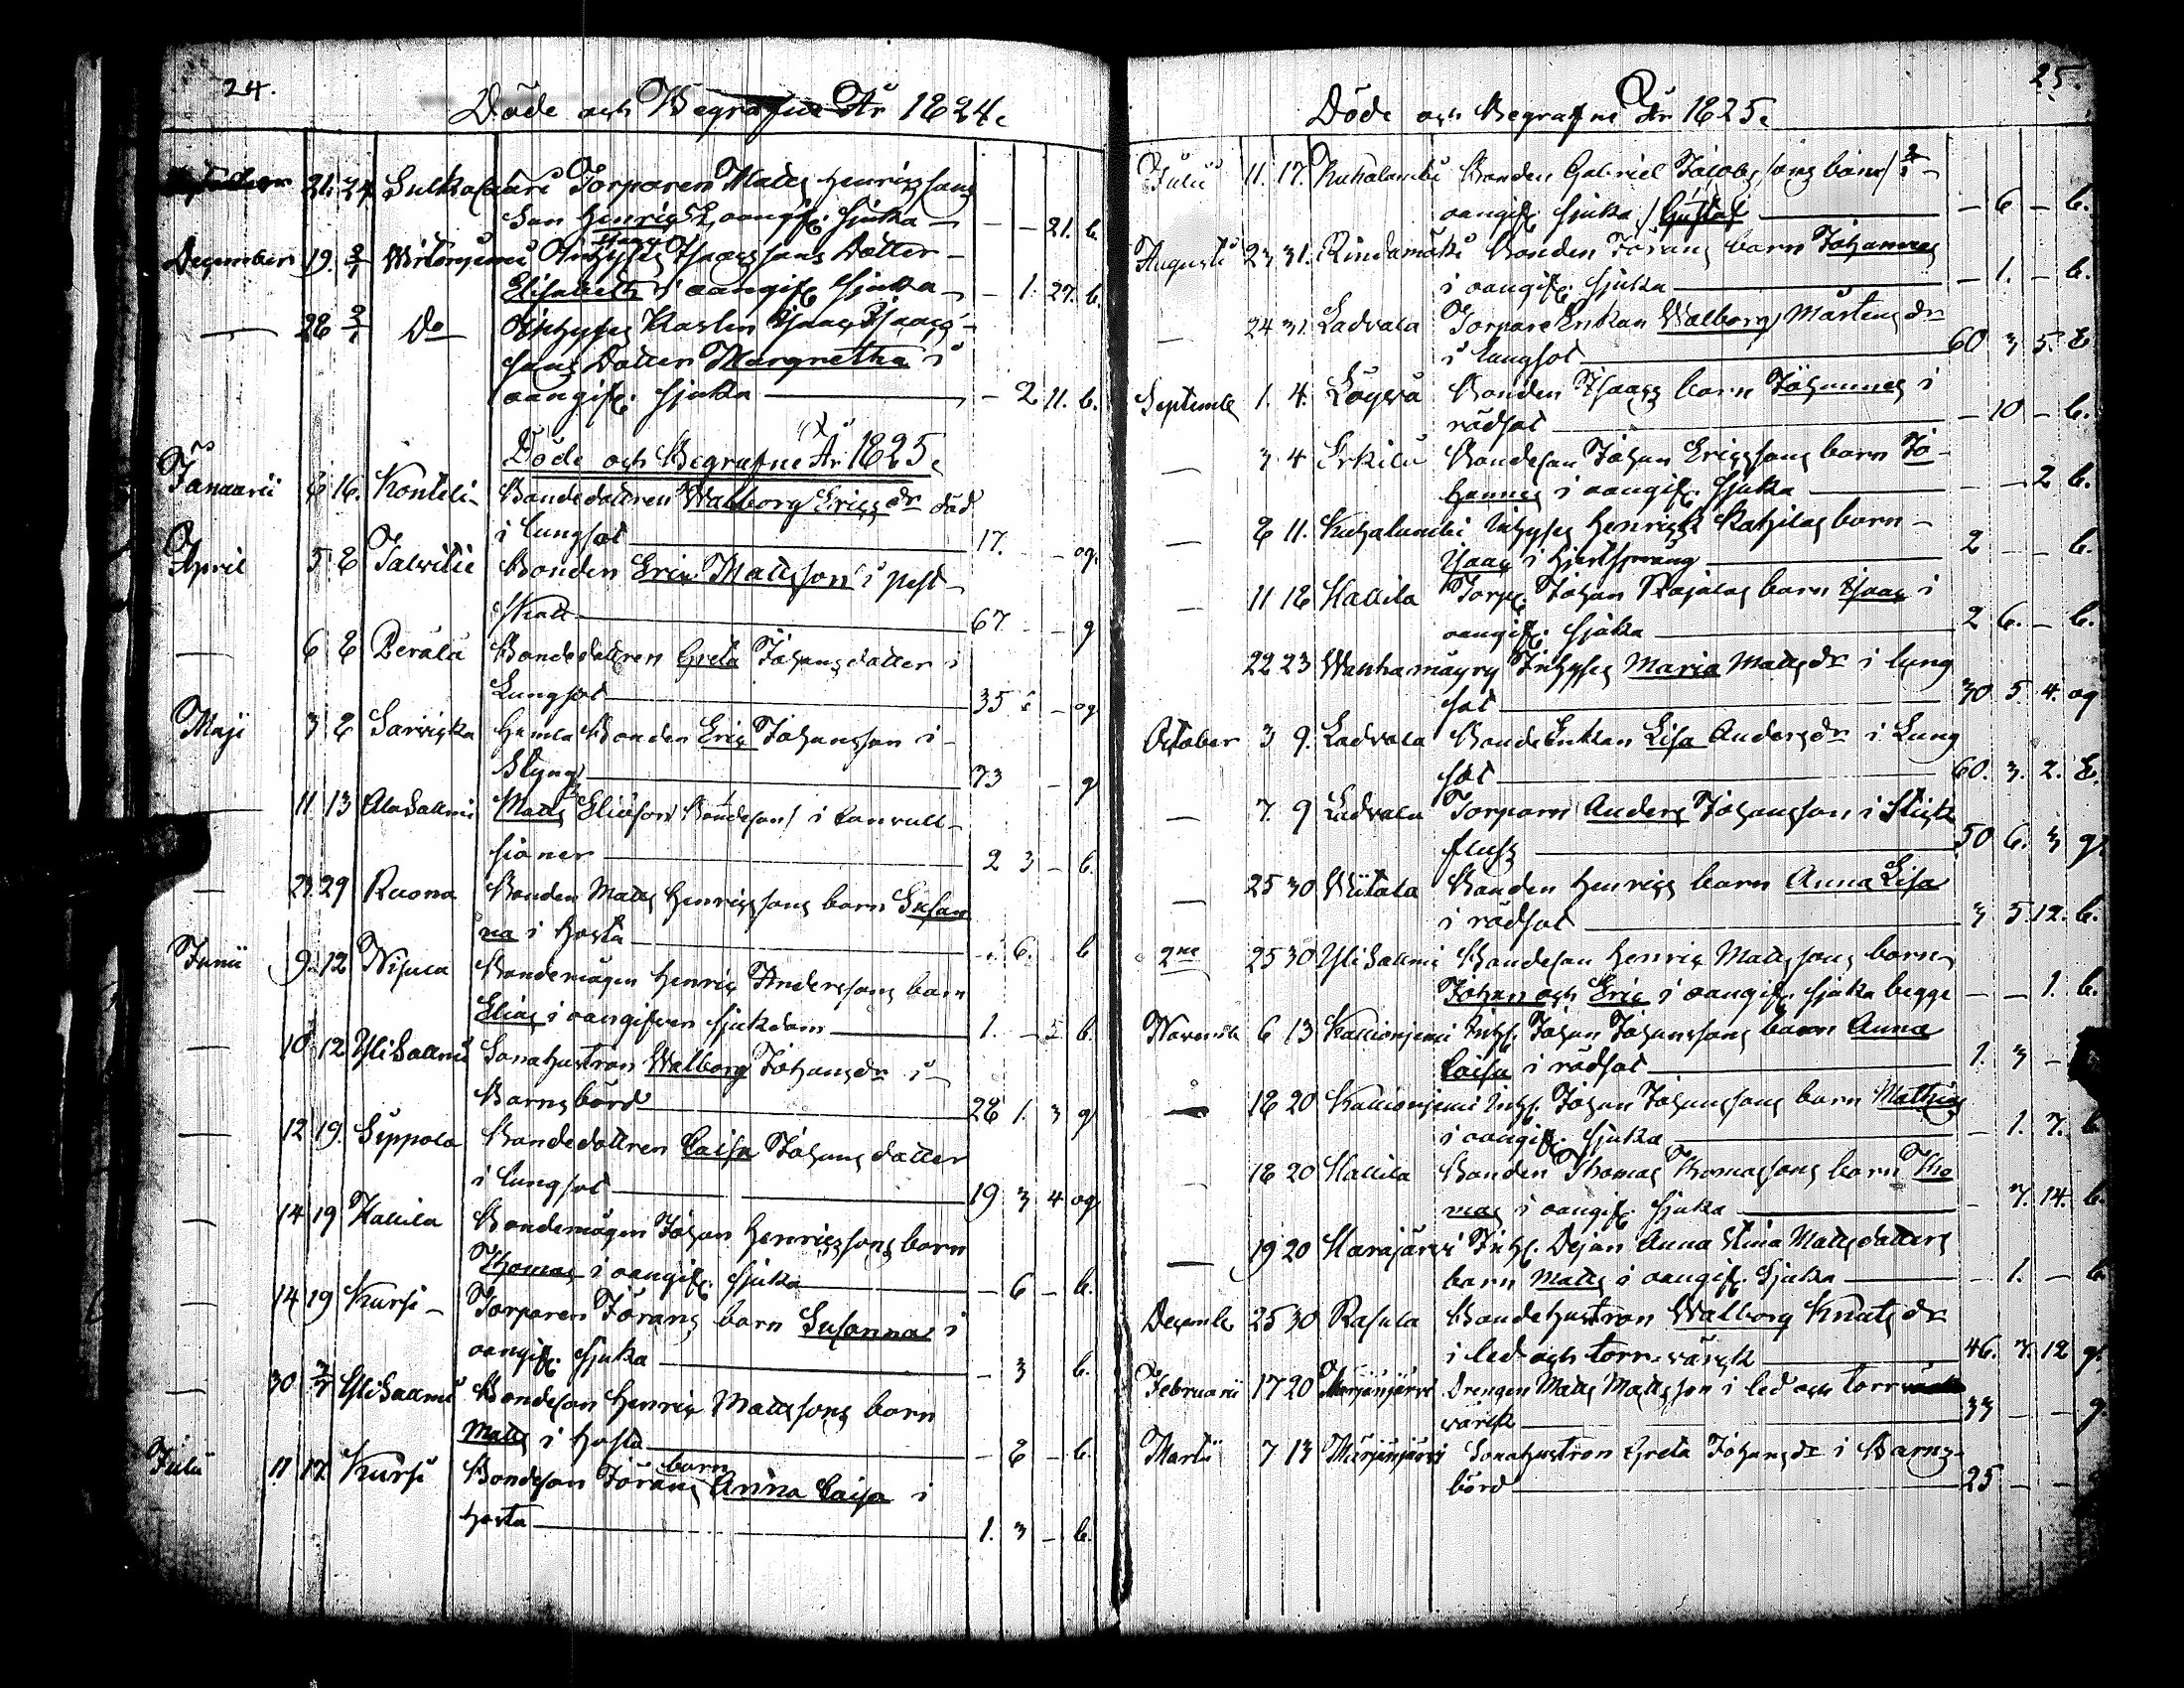 24.
Döde och Begrafne År 1824.
21. 24 Sulkakari Torparen Matts Henrikssons
Son Henrick, oangif. sjuka — — — 21. b.
December 19. 2/1 Wirtaniemi Inhyses Isaacssons Dotter
Elisabeth i oangif. sjuka — — 1. 27. b.
— 28 2/1 Do Inhyses Karlen Isaac Isaacs-
sons Dotter Margretha i
oangif. sjuka — — 2 11. b.
Döde och Begrafne År 1825.
Januarii 6 16. Kontili Bondedottren Walborg Ericsdr död
i lungsot — 17. — — og.
April 5 8 Talvitie Bonden Eric Mattsson i
67. — — g
— 6 8 Perälä Bondedottren Greta Johansdotter i
Lungsot — 35 — — og
Maji 3 8 Sarvicka Gamla Bonden Eric Johansson i
Styng — 73 — — g
— 11. 13 Ala Sallmi Matts Eliæson Bondeson i convull-
sioner — 2 3 — b.
— 23. 29 Ruona Bonden Matts Henricssons barn Susan
na i Hosta — — 6. — b
Junii 9. 12 Nisula Bondemågen Henric Anderssons barn
Elias i oangifven sjukdom — 1. — 5 b.
— 10 12 Yli Sallmi Sonahustron Walborg Johansdr i
Barnsbörd — 28 1. 3 g
— 12 19. Seppälä Bondedottren Caisa Johansdotter
i lungsot — 19 3 4 og
— 14 19 Hallila Bondemågen Johan Henricssons barn
Thomas i oangif. sjuka — — 6 — b.
— 14 19 Kursi Torparen Görans barn Susanna i
oangif. sjuka — — 3 b.
— 30 3/7 Yli Sallmi Bondeson Henric Mattssons barn
Matts i Hosta — — 8 — b.
Julii 11 17. Kursi Bondeson Görans barn Anna Caisa i
Hosta — 1. 3 — b.
25.
Döde och Begrafne År 1825.
Julii 11. 17. Kuhalambi Bonden Gabriel Jacobssons barn i
oangif. sjuka Gustaf — — 6 — b.
Augusti 23 31. Rindamäki Bonden Görans barn Johannes
i oangif. sjuka — — 1. — b.
— 24 31. Ladvala Torpare Enkan Walborg Mårtensdr
i lungsot — 60 3 5. E
Septemb 1. 4. Löyvä Bonden Isaacs barn Johannes i
rödsot — — 10 — b.
— 3 4 Erkilä Bondeson Johan Ericssons barn Jo-
hannes i oangif. sjuka — — — 2 b.
— 8 11. Kuhalambi Inhyses Henrick Katzilas barn
Isaac i Hjertsprång — 2 — — b.
— 11 18 Hallila Torp. Johan Rajalas barn Isaac i
oangif. sjuka — 2 6. — b.
22 23 Wanhamäyry Inhyses Maria Mattsdr i lung
sot — 30 5. 4. og
October 3 9. Ladvala Bonde Enkan Lisa Andersdr i Lung
sot — 60. 3. 2. E.
— 7. 9 Ladvala Torparn Anders Johansson i Stick
fluss — 50 6. 3 g.
— 25 30 Wiitala Bonden Henrics barn Anna Lisa
i rödsot — 3 5. 12. b.
2ne 25 30 Yli Sallmi Bondeson Henric Mattssons barn
Johan och Eric i oangif. sjuka begge — — 1. b.
Novemb 6 13 Kallioniemi Inhys. Johan Johanssons barn Anna
Caisa i rödsot — 1. 3 —
— 18 20 Kallioniemi Inhys. Johan Johanssons barn Mathias
i oangif. sjuka — — 1. 7. b
— 18 20 Hallila Bonden Thomas Thomassons barn Tho
mas i oangif. sjuka — — 7. 14. b.
— 19 20 Harajärvi Inhys. Dejan Anna Stina Mattsdotters
barn Matts i oangif. Sjuka — — 1. — b
Decemb 25 30 Rasula Bondehustron Walborg Knutsdr
i led och torrvärck — 46. 7. 12 g.
Februarii 17 20 Murjonjärvi Drengen Matts Mattsson i led och torr
värck — 33 — — g.
Martii 7 13 Murjonjärvi Sonahustron Greta Johansdr i Barns-
börd — 25 — —